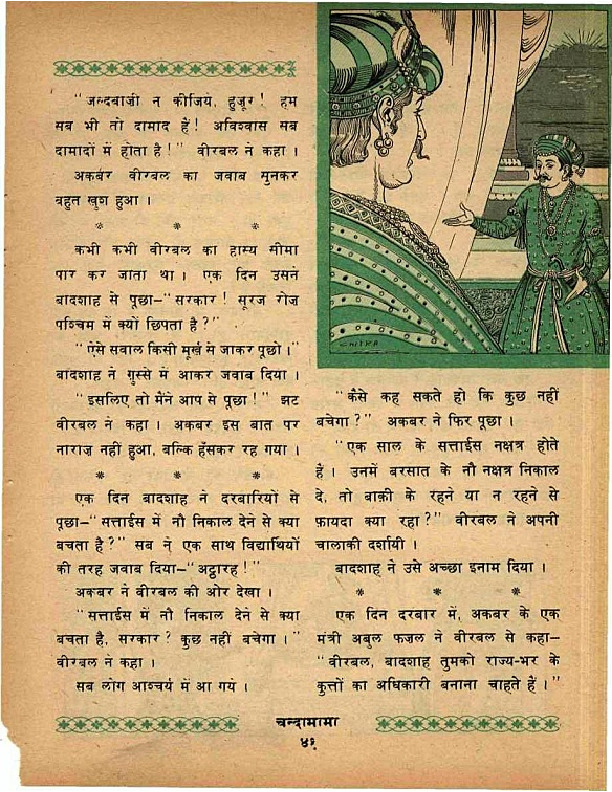 "जल्दबाज़ी न कीजिये, हुज़ूर! हम
सब भी तो दामाद हैं! अविश्वास सब
दामादों में होता है!" बीरबल ने कहा ।
अकबर बीरबल का जवाब सुनकर
बहुत खुश हुआ ।
* * *
कभी कभी बीरबल का हास्य सीमा
पार कर जाता था । एक दिन उसने
बादशाह से पूछा-"सरकार! सूरज रोज़
पश्चिम में क्यों छिपता है?"
"ऐसे सवाल किसी मूर्ख से जाकर पूछो ।"
बादशाह ने गुस्से में आकर जवाब दिया ।
"इसलिए तो मैंने आप से पूछा!" झट
बीरबल ने कहा । अकबर इस बात पर
नाराज़ नहीं हुआ, बल्कि हँसकर रह गया ।
* * *
एक दिन बादशाह ने दरबारियों से
पूछा-"सत्ताईस में नौ निकाल देने से क्या
बचता है?" सब ने एक साथ विद्यार्थियों
की तरह जवाब दिया-"अट्ठारह!"
अकबर ने बीरबल की ओर देखा ।
"सत्ताईस में नौ निकाल देने से क्या
बचता है, सरकार? कुछ नहीं बचेगा ।"
बीरबल ने कहा ।
सब लोग आश्चर्य में आ गये ।
CHITRA
"कैसे कह सकते हो कि कुछ नहीं
बचेगा?" अकबर ने फिर पूछा ।
"एक साल के सत्ताईस नक्षत्र होते
हैं । उनमें बरसात के नौ नक्षत्र निकाल
दे, तो बाक़ी के रहने या न रहने से
फ़ायदा क्या रहा?" बीरबल ने अपनी
चालाकी दर्शायी ।
बादशाह ने उसे अच्छा इनाम दिया ।
* * *
एक दिन दरबार में, अकबर के एक
मंत्री अबुल फज़ल ने बीरबल से कहा-
"बीरबल, बादशाह तुमको राज्य-भर के
कुत्तों का अधिकारी बनाना चाहते हैं ।"
चन्दामामा
४१